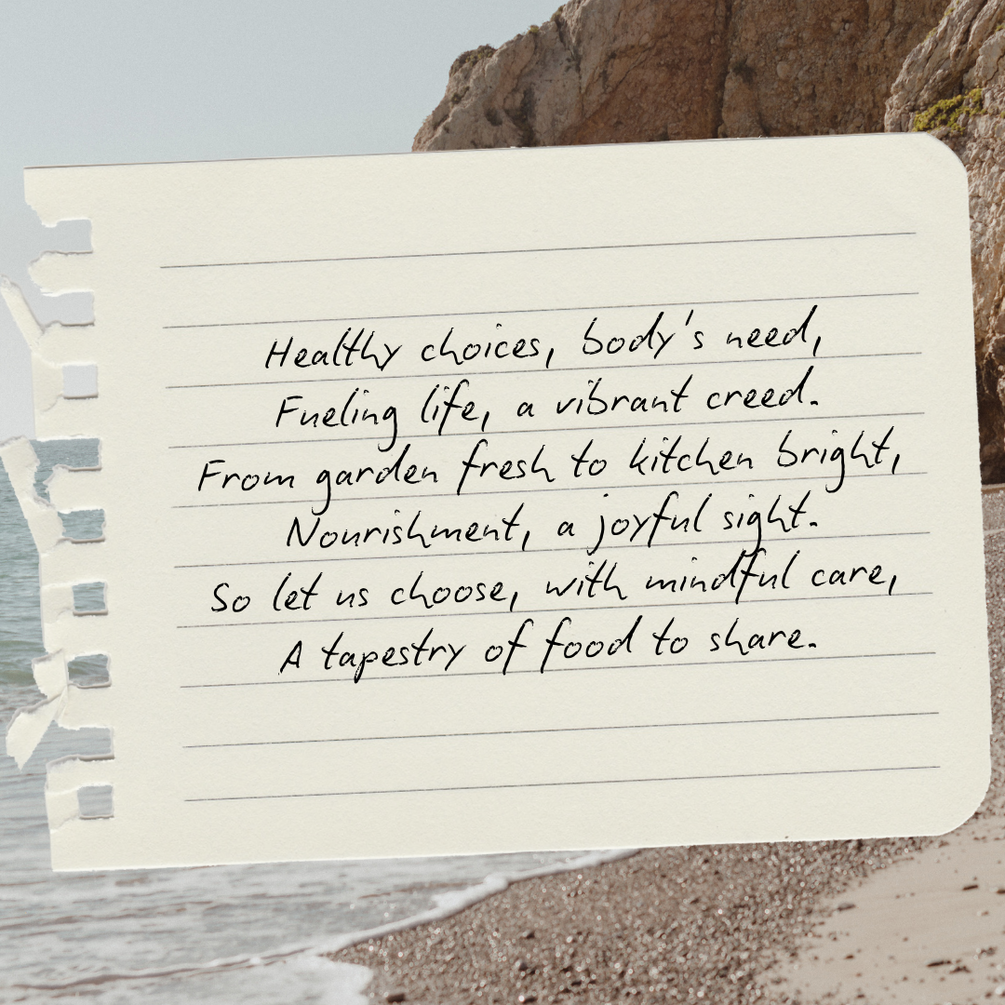 Healthy choices, body's need,
Fueling life, a vibrant creed.
From garden fresh to kitchen bright,
Nourishment, a joyful sight.
So let us choose, with mindful care,
A tapestry of food to share.